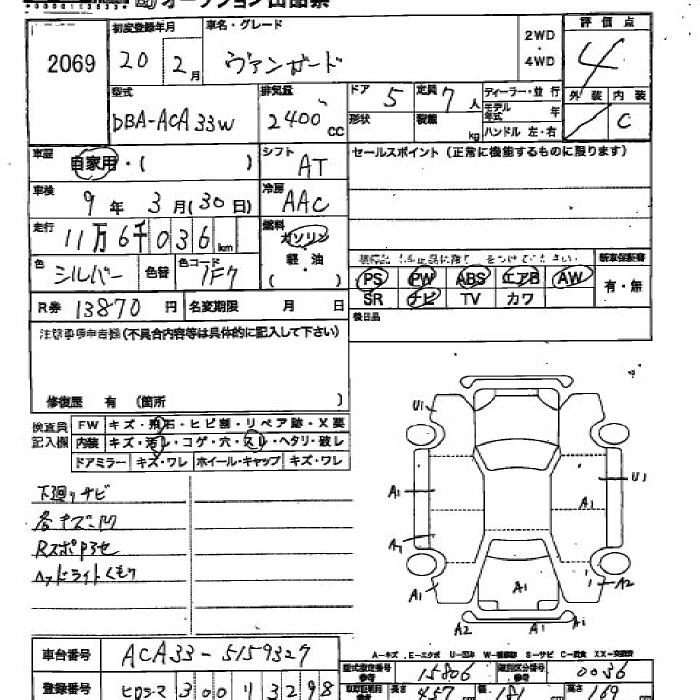 オークション出品票
2069
初度登録年月 20 2月
車名・グレード ヴァンガード
2WD ・ 4WD
評価点 4
型式 DBA-ACA33W
排気量 2400 CC
ドア 5
定員 7人
形状
積載 kg
ディーラー・並行
モデル年式 年
ハンドル 左・右
外装 内装 C
車歴 自家用・( )
シフト AT
セールスポイント (正常に機能するものに限ります)
車検 9年 3月(30日)
冷房 AAC
走行 11万6千036km
燃料 ガソリン 軽・油 ・( )
色 シルバー 色替 色コード 1F7
PS PW ABS エアB AW
SR ナビ TV カワ
新車保証書 有・無
R券 13870円 名変期限 月 日
後日品
注意事項申告欄(不具合内容等は具体的に記入して下さい)
修復歴 有 (箇所 )
検査員記入欄
FW キズ・飛石・ヒビ割・リペア跡・X要
内装 キズ・汚レ・コゲ・穴・スレ・ヘタリ・破レ
ドアミラー キズ・ワレ ホイール・キャップ キズ・ワレ
下廻りサビ
各キズ凹
Rスポ
ヘッドライトくもり
U1
A1 A1 U1
A1
A1 A1 A2
A2 A1
A-キズ E-エクボ U-凹み W-補修跡 S-サビ C-腐食 XX-交換済
車台番号 ACA33-5159327
型式指定番号 15806 類別区分番号 0036
登録番号 ヒロシマ 300 リ 3298
長さ 457 幅 181 高さ 169